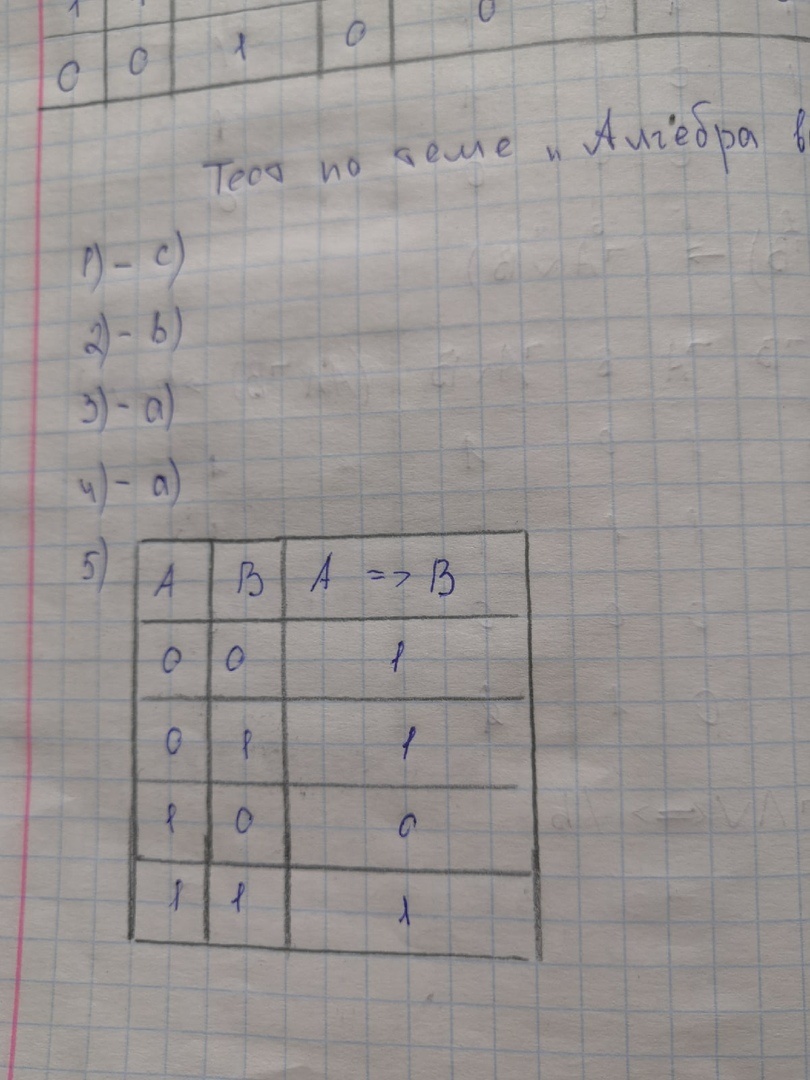 0 0 1 0 0
Тест по теме " Алгебра в
1) - c)
2) - b)
3) - a)
4) - a)
5)
A B A => B
0 0 1
0 1 1
1 0 0
1 1 1